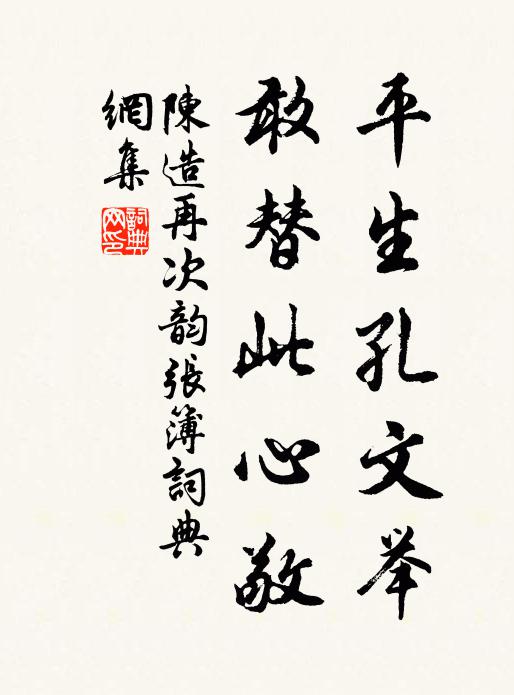 平生孔文举
敢替此心敬
陳造再次韵張簿詞典
網集
詞典
网印